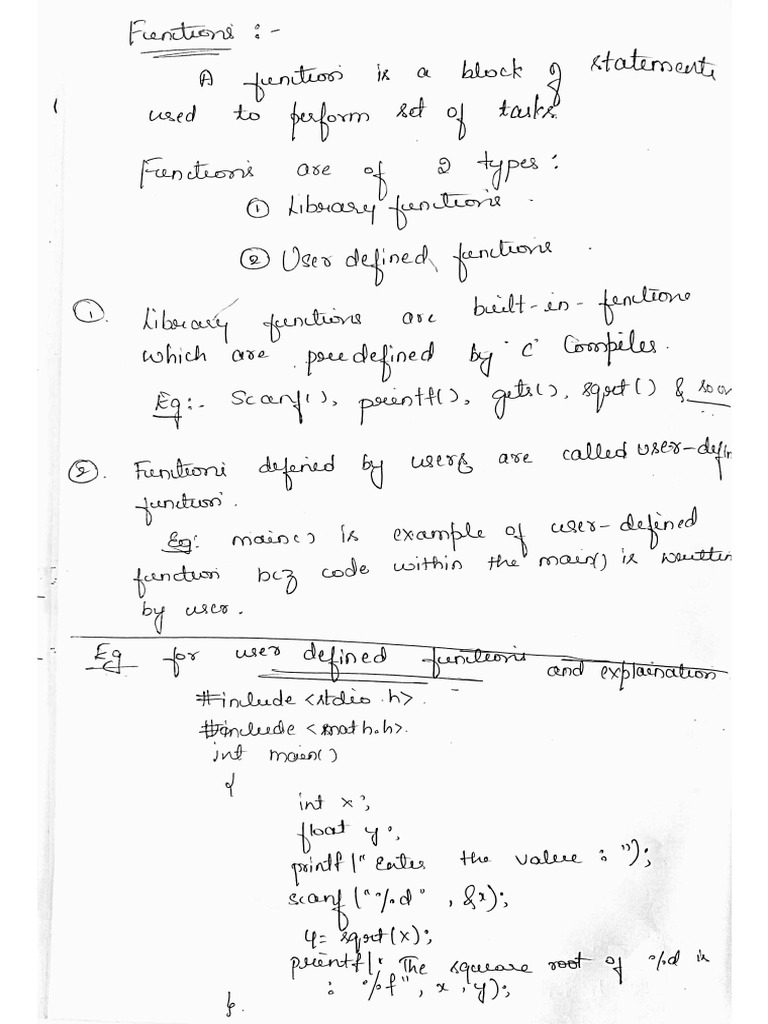 Functions :-
A function is a block of statements
used to perform set of tasks.
Functions are of 2 types :
① Library functions .
② User defined functions .
①. Library functions are built-in-functions
which are predefined by 'C' Compiler.
Eg:- Scanf(), printf(), gets(), sqrt() & so on
②. Functions defined by users are called user-defin
function.
Eg: main() is example of user-defined
function bcz code within the main() is written
by user.
Eg for user defined functions and explaination
#include <stdio.h>.
#include <math.h>.
int main()
{
int x;
float y;
printf(" Enter the value : ");
scanf("%d" , &x);
y= sqrt(x);
printf(" The square root of %d is
: %f", x , y);
}.